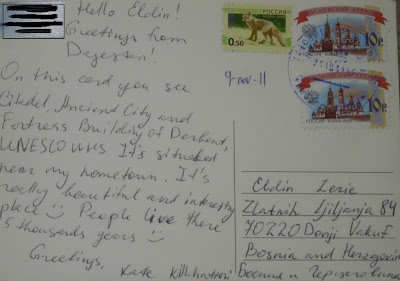 Hello Eldin!
Greetings from
Dagestan!
On this card you see
Citadel, Ancient City and
Fortress Building of Derbent,
UNESCO WHS. It's situated
near my hometown. It's
really beautiful and interesty
place People live there
5 thousands years
Greetings,
Kate
РОССИЯ
0.50
9-nov-11
10р
10р
Eldin Zeric
Zlatnih Ljiljanja 84
70220 Donji Vakuf
Bosnia and Herzegovina
Босния и Герцеговина